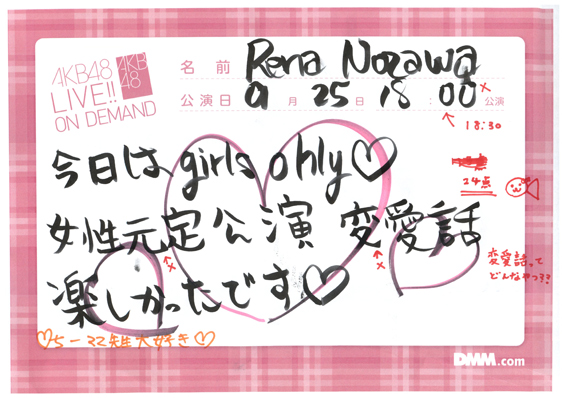 AKB48
LIVE!!
ON DEMAND
AKB
48
名前 Rena Nozawa
公演日 9月 25日 18:00 公演
×
18:30
今日は girls only♡
24点
女性元定公演 変愛話
×
×
変愛話って
どんなやつ??
楽しかったです♡
大好き♡
DMM.com